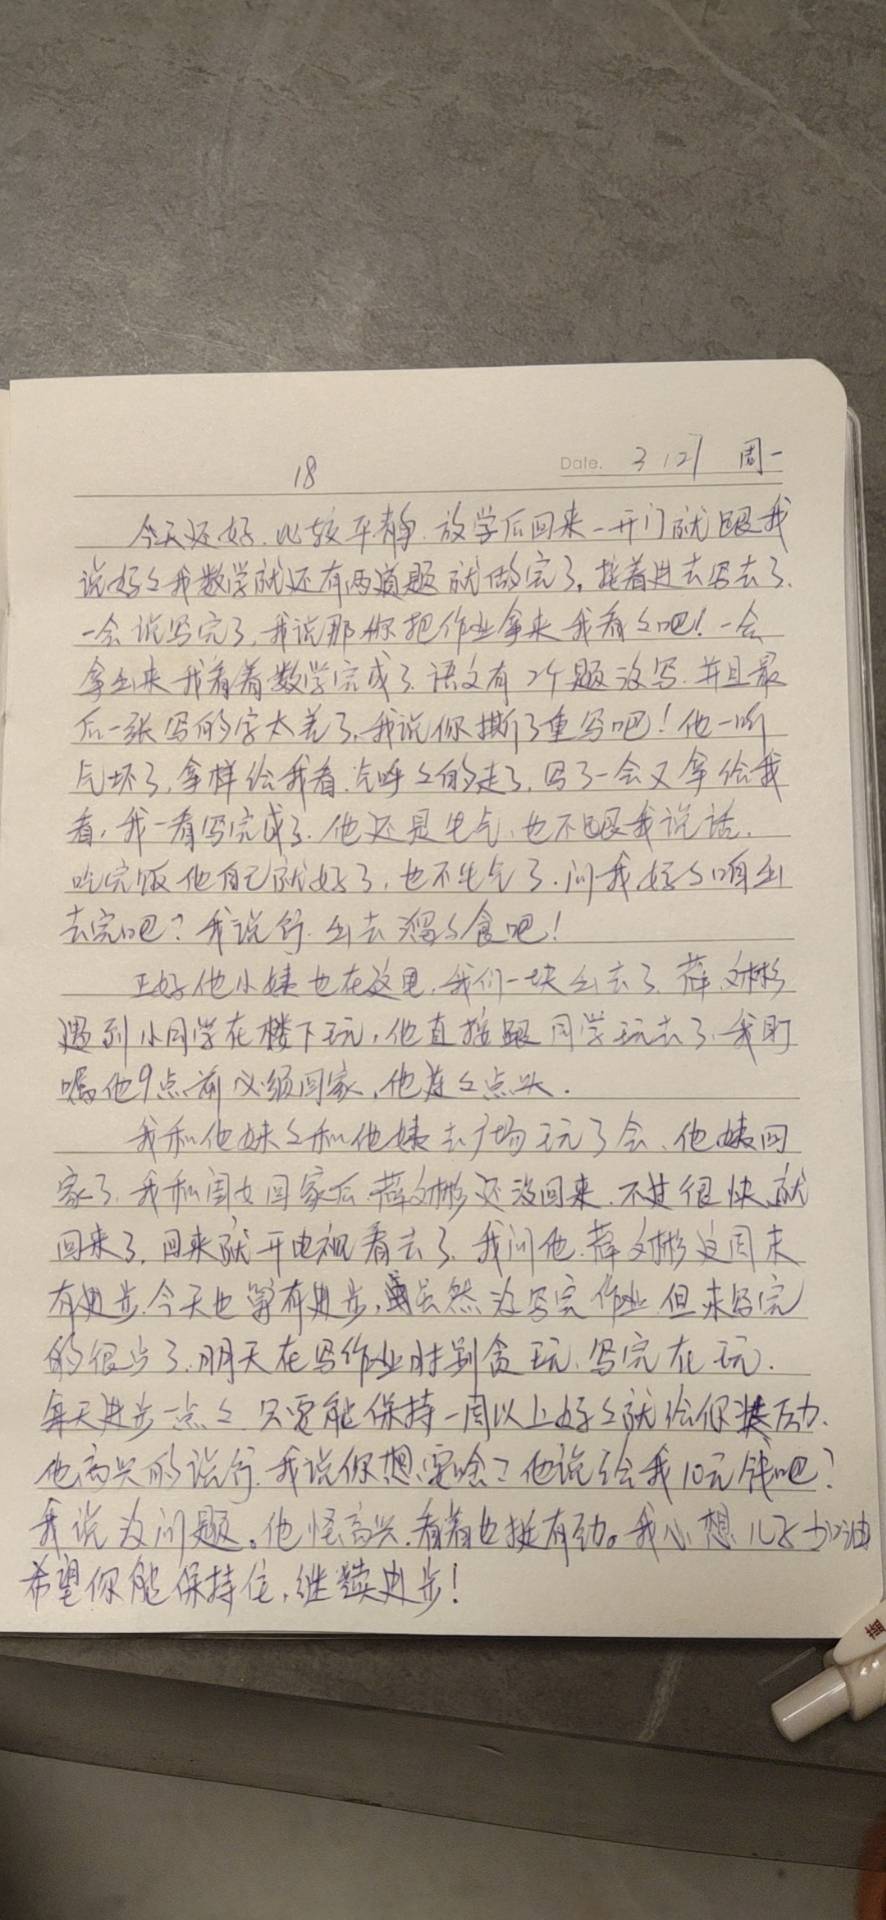 18 Date. 3.12 周一
今天还好.比较平静.放学后回来一开门就跟我
说妈々我数学就还有两道题就做完了,接着进去写去了.
一会说写完了,我说那你把作业拿来我看々吧!一会
拿出来我看着数学完成了.语文有2个题没写.并且最
后一张写的字太差了,我说你撕了重写吧!他一听
气坏了,拿样给我看.气呼々的走了.写了一会又拿给我
看,我一看写完成了.他还是生气,也不跟我说话.
吃完饭他自己就好了,也不生气了.问我妈々咱出
去完吧?我说行.出去溜々食吧!
正好他小姨也在这里,我们一块出去了.薛文彬
遇到小同学在楼下玩,他直接跟同学玩去了.我叮
嘱他9点前必须回家,他连々点头.
我和他妹々和他姨去广场玩了会、他姨回
家了.我和闺女回家后.薛文彬还没回来.不过很快就
回来了,回来就开电视看去了.我问他.薛文彬这周末
有进步.今天也算有进步,虽然没写完作业.但来写完
的很少了.明天在写作业时别贪玩.写完在玩.
每天进步一点々.只要能保持一周以上妈々就给你奖励.
他高兴的说行.我说你想要啥?他说给我10元钱吧?
我说没问题。他怪高兴.看着也挺有劲。我心想儿子加油
希望你能保持住,继续进步!